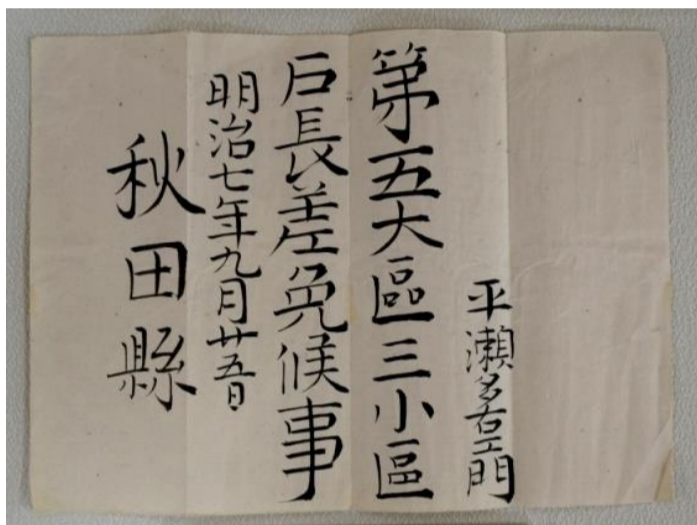 平瀬多右エ門
第五大區三小區
戸長差免候事
明治七年九月廿五日
秋田縣